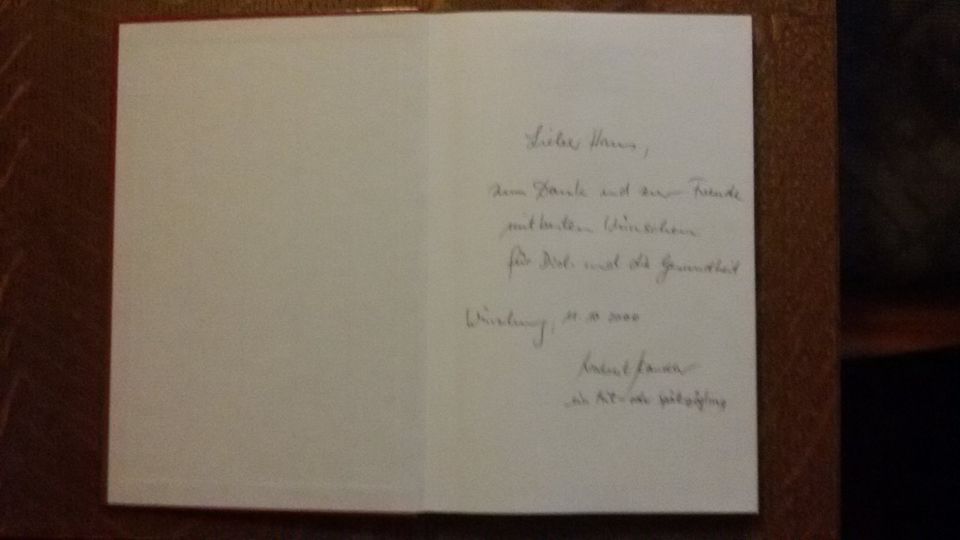 Lieber Hans,
zum Danke und zur Freude
mit besten Wünschen
für Dich und die Gesundheit
Würzburg, 11. 10 2000
ein Mit- oder